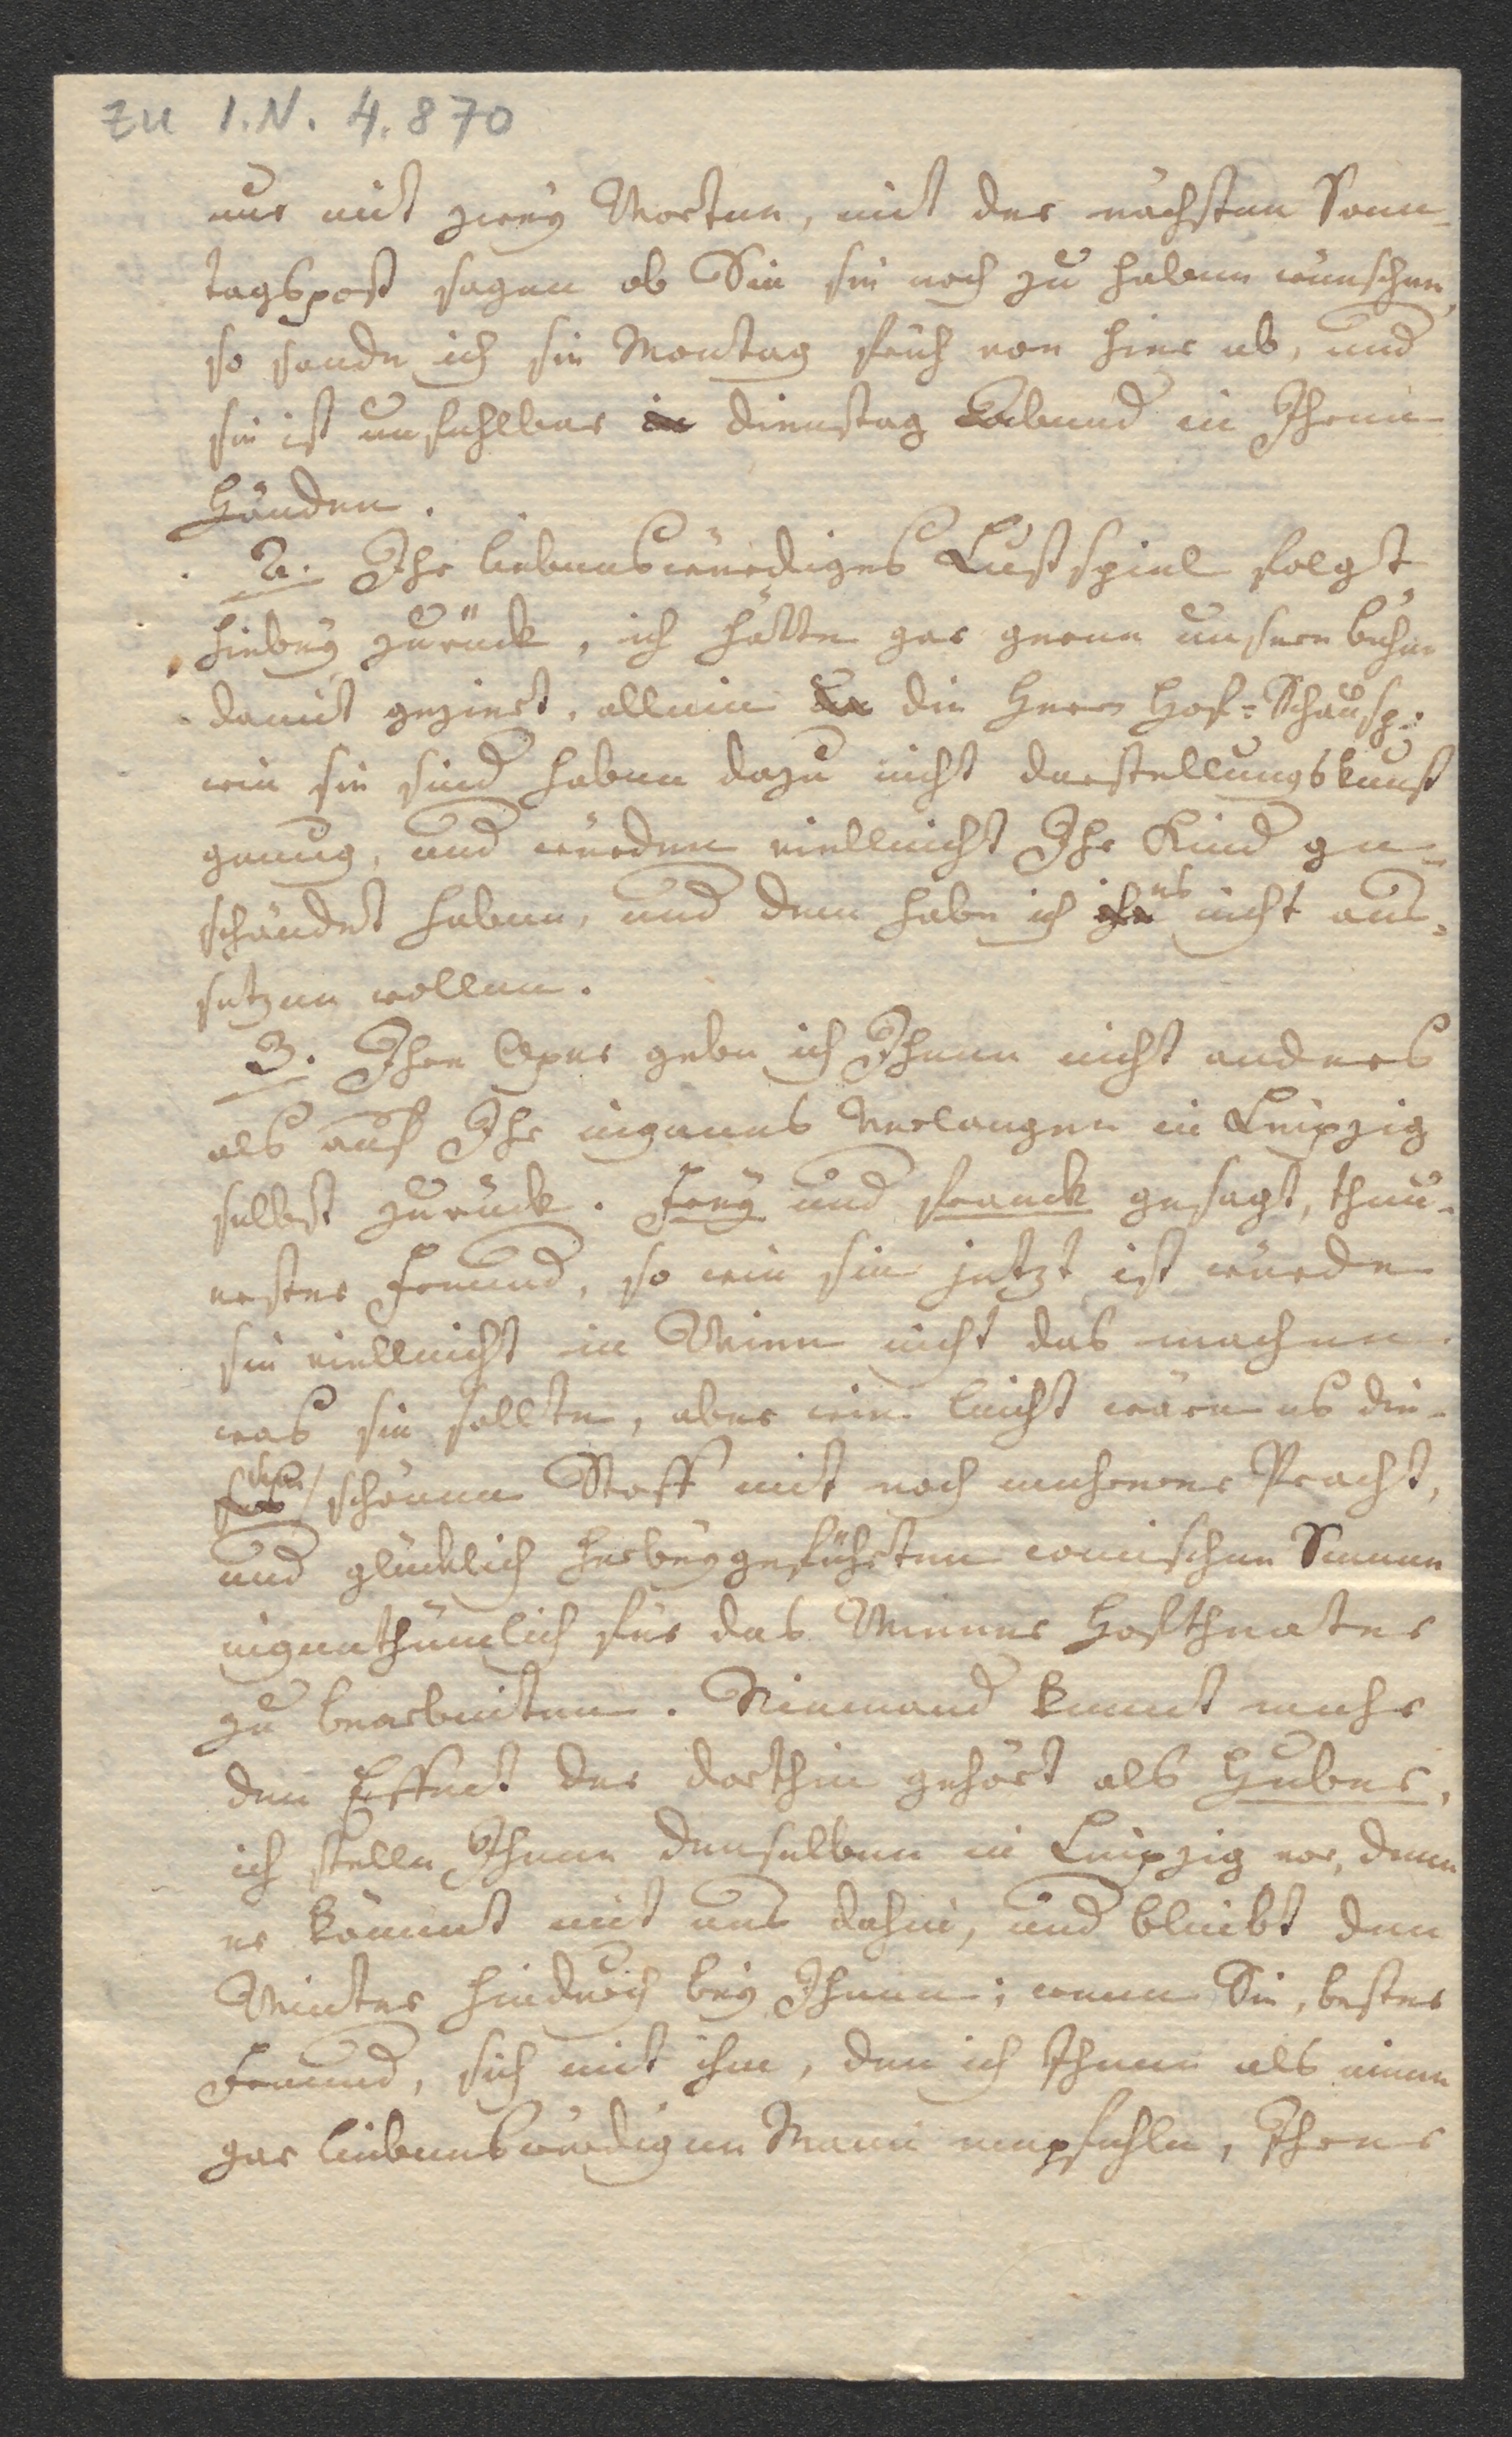 zu I.N. 4.870
nur mit zwey Worten, mit der nächsten Sonn-
tagspost sagen ob Sie sie noch zu haben wünschen,
so sende ich sie Montag früh von hier ab, und
sie ist unfehlbar in Dienstag Abend in Ihren
Händen.
2. Ihr liebenswürdiges Lustspiel folgt
hiebey zurück, ich hätte gar gerne unsere Bühne
damit geziert, allein die Herrn Hof-Schausp:
wie sie sind haben dazu nicht Darstellungskunst
genug, und würden vielleicht Ihr Kind ge-
schändet haben, und dem habe ich es nicht aus-
setzen wollen.
3. Ihre Oper gebe ich Ihnen nicht anders
als auf Ihr eigenes Verlangen in Leipzig
selbst zurück. Frey und franck gesagt, theu-
erster Freund, so wie sie jetzt ist würde
sie vielleicht in Wien nicht das machen
was sie sollte, aber wie leicht wäre es die-
sen schönen Stoff mit noch mehrerer Pracht,
und glücklich herbeygeführten comischen Scenen
eigenthümlich für das Wiener Hoftheater
zu bearbeiten. Niemand kennt mehr
den Effect der dorthin gehört als Huber,
ich stelle Ihnen denselben in Leipzig vor, denn
er kömmt mit uns dahin, und bleibt den
Winter hindurch bey Ihnen; wenn Sie, bester
Freund, sich mit ihm, den ich Ihnen als einen
gar liebenswürdigen Mann empfehle, Ihrer